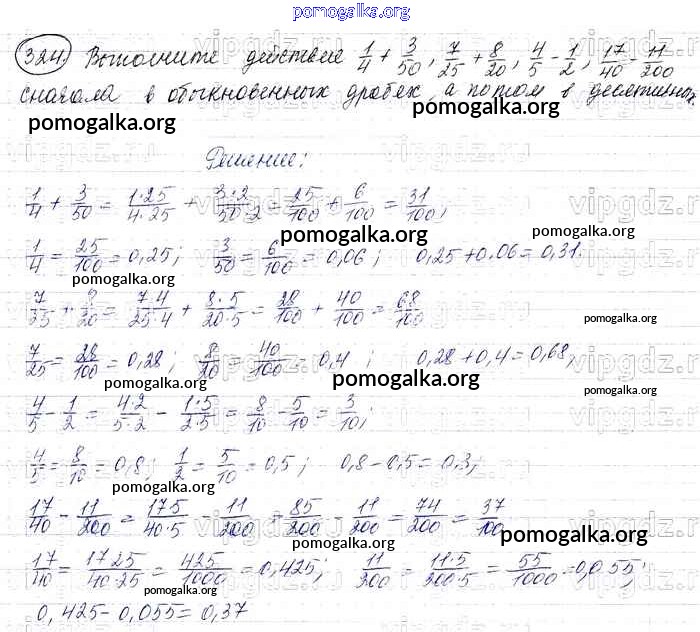 pomogalka.org
324. Выполните действие 1/4 + 3/50, 7/25 + 8/20, 4/5 - 1/2, 17/40 - 11/200
сначала в обыкновенных дробях, а потом в десятичных
pomogalka.org pomogalka.org
Решение:
1/4 + 3/50 = 1·25/4·25 + 3·2/50·2 = 25/100 + 6/100 = 31/100,
pomogalka.org pomogalka.org
1/4 = 25/100 = 0,25; 3/50 = 6/100 = 0,06; 0,25+0.06=0,31.
pomogalka.org
7/25 + 8/20 = 7·4/25·4 + 8·5/20·5 = 28/100 + 40/100 = 68/100
pomogalka.org
7/25 = 28/100 = 0,28; 8/20 = 40/100 = 0,4; 0,28+0,4=0,68,
pomogalka.org pomogalka.org pomogalka.org
4/5 - 1/2 = 4·2/5·2 - 1·5/2·5 = 8/10 - 5/10 = 3/10;
4/5 = 8/10 = 0,8; 1/2 = 5/10 = 0,5; 0,8-0,5=0,3;
pomogalka.org
17/40 - 11/200 = 17·5/40·5 - 11/200 = 85/200 - 11/200 = 74/200 = 37/100
pomogalka.org pomogalka.org
17/40 = 17·25/40·25 = 425/1000 = 0,425; 11/200 = 11·5/200·5 = 55/1000 = 0,055;
pomogalka.org
0,425-0,055=0,37